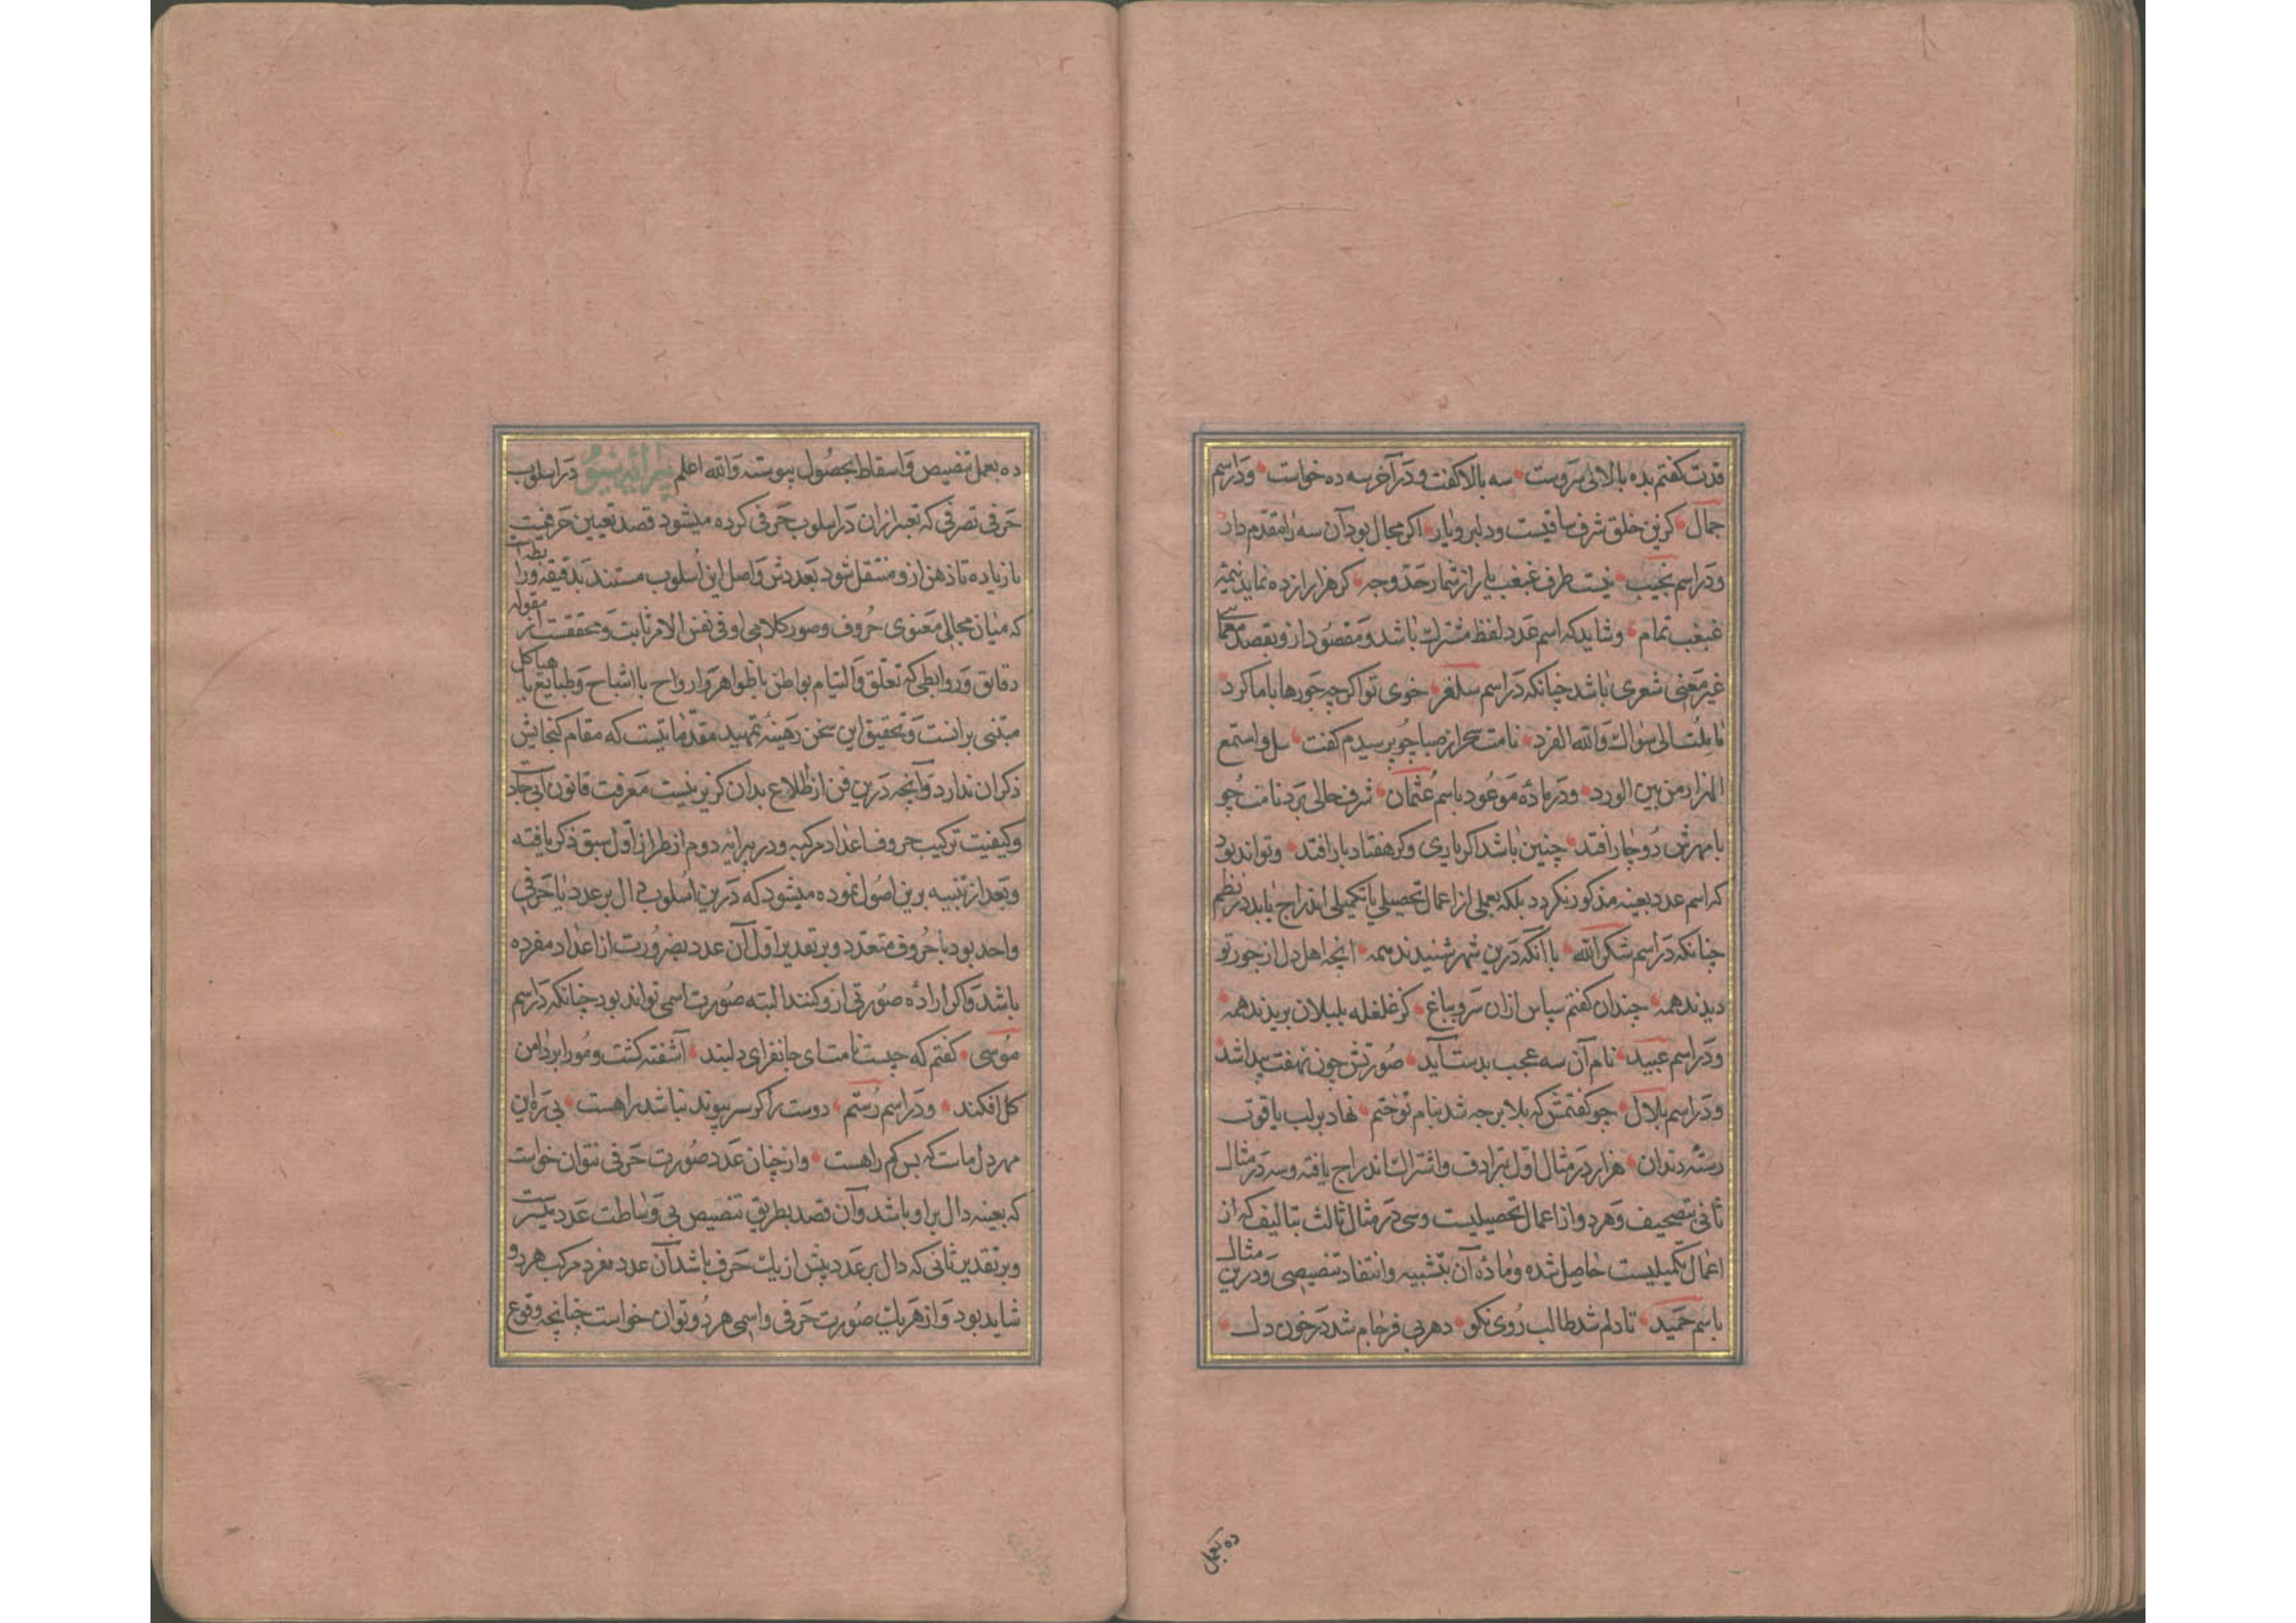 قدت کفتم بده بالائی سروست سه بالا کفت و در آخر سه ده خواست و در اسم
جمال کزین خلق شرف ساقیست و دلبر و یار اکر مجال بود آن سه را مقدم دار
و در اسم نجیب نیست طرف غبغب یار از شمار حد و جه کر هزار از ده نماید نیمهٔ
غبغب تمام و شاید که اسم عدد لفظ مشترک باشد و مقصود ازو بقصد معمائی
غیر معنی شعری باشد چنانکه در اسم سلغر خوی تو اکرچه جورها با ما کرد
ما ملت الی سواک والله الفرد نامت سحر از صبا چو پرسیدم کفت سل و استمع
الهزار من بین الورد و در مادهٔ موعود باسم عثمان شرف حالی برد نامت چو
با مهرش دوچار افتد چنین باشد اکر باری و کر هفتاد بار افتد و تواند بود
که اسم عدد بعینه مذکور نکردد بلکه بعملی از اعمال تحصیلی یا تکمیلی اندراج یابد در نظم
چنانکه در اسم شکرالله با آنکه درین شهر شنیدند همه انچه اهل دل از جور تو
دیدند همه چندان کفتم سپاس ازان سرو بباغ کز غلغله بلبلان بریدند همه
و در اسم عبید نام آن سه عجب بدست آید صورتش چون نهفت پیدا شد
و در اسم بلال چو کفتمش که بلا بر چه شد بنام تو ختم نهاد بر لب یاقوت
رستهٔ دندان هزار در مثال اول بترادف و اشتراک اندراج یافته و سه در مثال
ثانی بتصحیف و هر دو از اعمال تحصیلیست و سی در مثال ثالث بتالیف که از
اعمال تکمیلیست حاصل شده و مادهٔ آن بتشبیه و انتقاد تنصیصی و درین مثال
باسم حمید تا دلم شد طالب روی نکو دهر بی فرجام شد در خون دل
ده بعمل
ده بعمل تنصیص و اسقاط بحصول پیوسته والله اعلم پیرائیه سیوم در اسلوب
حرفی تصرفی که تعبیر ازان در اسلوب حرفی کرده میشود قصد تعیین حرفیست
یا زیاده تا ذهن ازو منتقل شود بعددش و اصل این اسلوب مستند بدقیقه و رابطه است
که میان مجالی معنوی حروف و صور کلامی او فی نفس الامر ثابت و محققست از مقوله
دقایق و روابطی که تعلق و التیام بواطن با ظواهر و ارواح با اشباح و طبایع با هیاکل
مبتنی برانست و تحقیق این سخن رهینهٔ تمهید مقدماتیست که مقام کنجایش
ذکر ان ندارد و آنچه درین فن از اطلاع بدان کزیر نیست معرفت قانون ابی جاد
و کیفیت ترکیب حروف اعداد مرکبه و در پیرایه دوم از طراز اول سبق ذکر یافته
و بعد از تنبیه برین اصول نموده میشود که درین اسلوب دال بر عدد یا حرفی
واحد بود یا حروف متعدد و بر تقدیر اول آن عدد بضرورت از اعداد مفرده
باشد و اکر ارادهٔ صورتی ازو کنند البته صورت اسمی تواند بود چنانکه در اسم
موسی کفتم که چیست نامت ای جانفزای دلبند آشفته کشت و مو را بر دامن
کل افکند و در اسم رستم دوست را کر سر پیوند نباشد راهست بی ره این
مهر دل ماست که بس کم راهست و از چنان عدد صورت حرفی نتوان خواست
که بعینه دال بر او باشد و آن قصد بطریق تنصیص بی وساطت عدد میسرست
و بر تقدیر ثانی که دال بر عدد بیش از یک حرف باشد آن عدد مفرد و مرکب هر دو
شاید بود و از هر یک صورت حرفی و اسمی هر دو توان خواست چنانچه وقوع